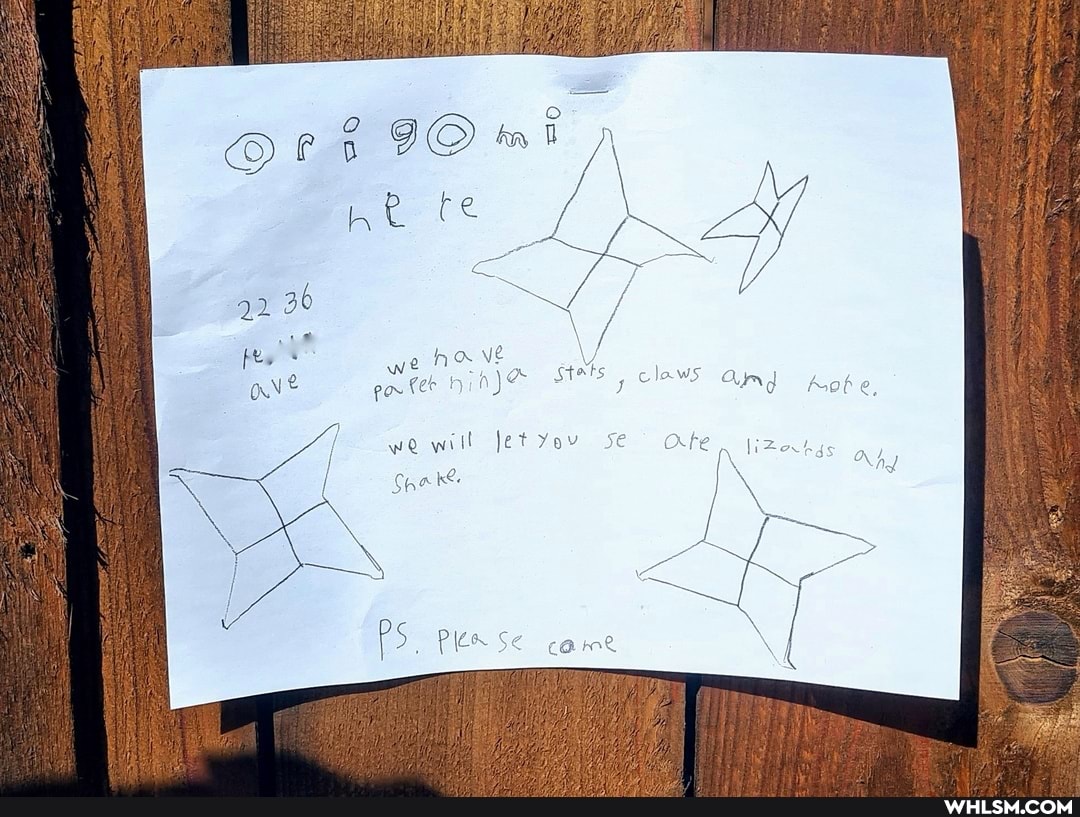 origomi
here
22 36
ave
we have
paper ninja stars, claws and more.
we will let you se are lizards and
snake.
PS. Please come
WHLSM.COM